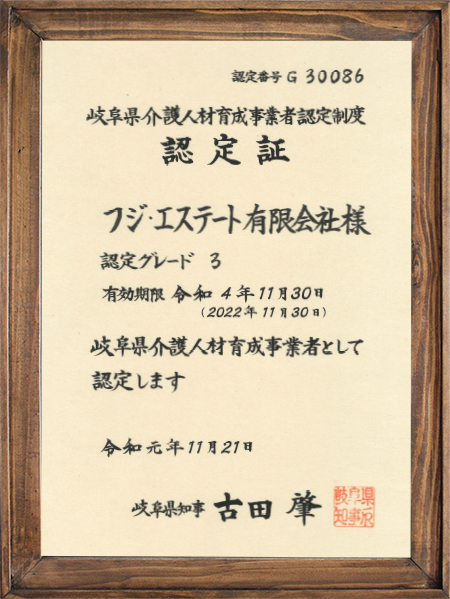 認定番号 G 30086
岐阜県介護人材育成事業者認定制度
認定証
フジ・エステート有限会社様
認定グレード 3
有効期限 令和 4年11月30日
(2022年11月30日)
岐阜県介護人材育成事業者として
認定します
令和元年11月21日
岐阜県知事 古田 肇